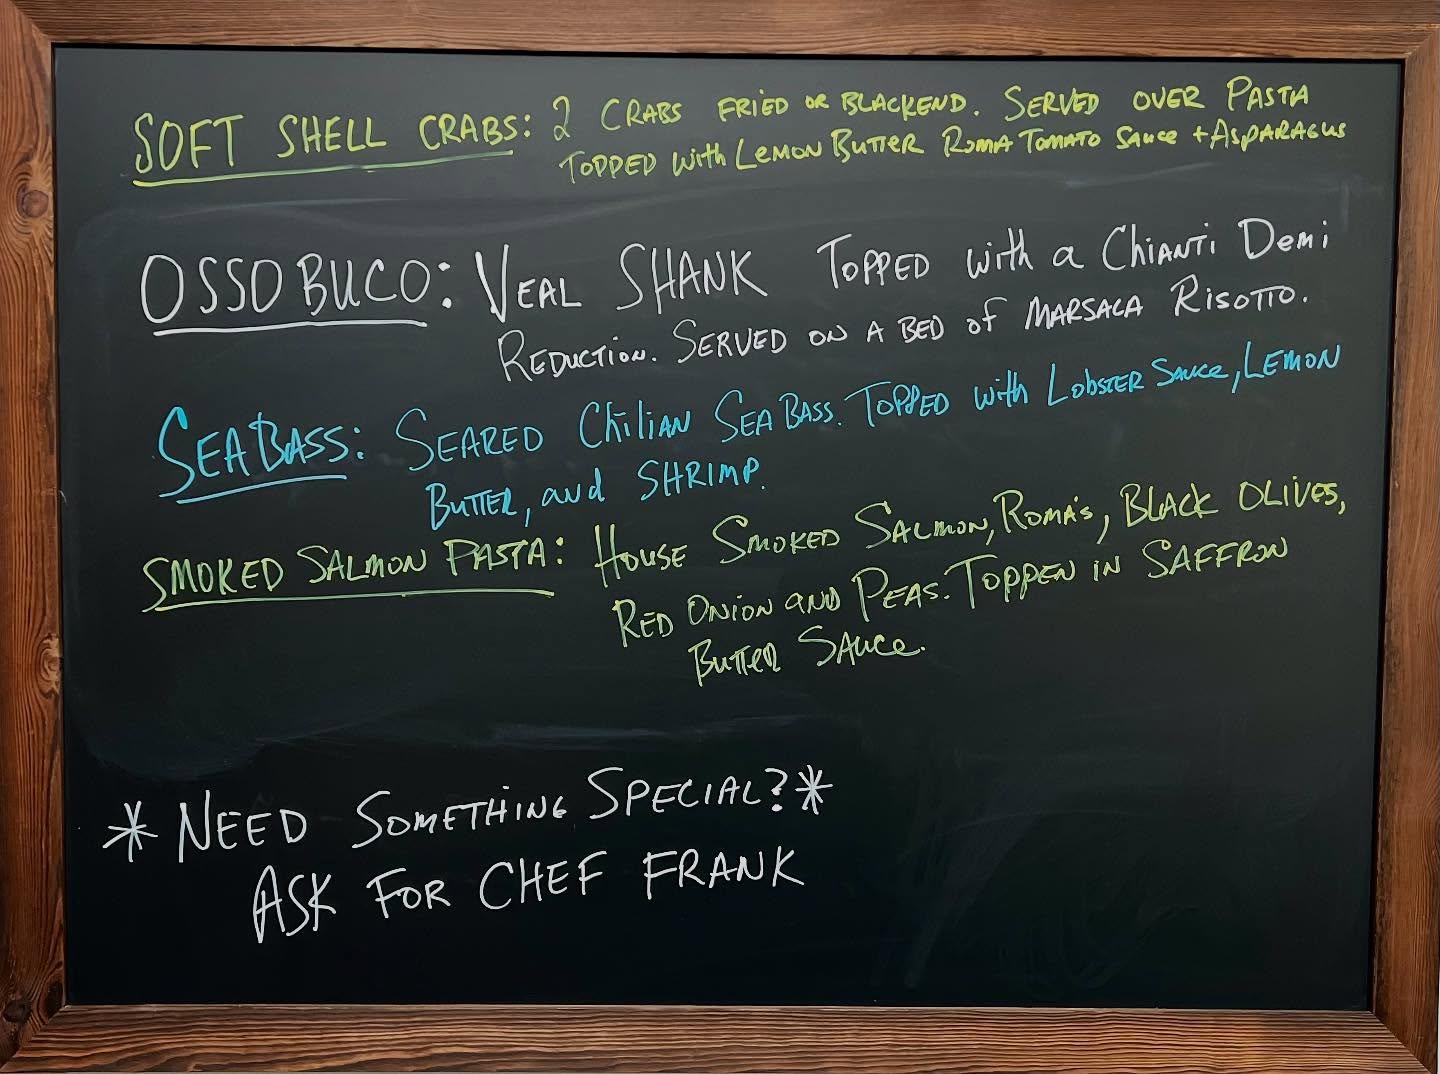 SOFT SHELL CRABS: 2 CRABS FRIED OR BLACKEND. SERVED OVER PASTA
TOPPED WITH LEMON BUTTER ROMA TOMATO SAUCE + ASPARAGUS
OSSO BUCO: VEAL SHANK TOPPED WITH A CHIANTI DEMI
REDUCTION. SERVED ON A BED OF MARSALA RISOTTO.
SEA BASS: SEARED CHILIAN SEA BASS. TOPPED WITH LOBSTER SAUCE, LEMON
BUTTER, AND SHRIMP.
SMOKED SALMON PASTA: HOUSE SMOKED SALMON, ROMA'S, BLACK OLIVES,
RED ONION AND PEAS. TOPPEN IN SAFFRON
BUTTER SAUCE.
* NEED SOMETHING SPECIAL? *
ASK FOR CHEF FRANK